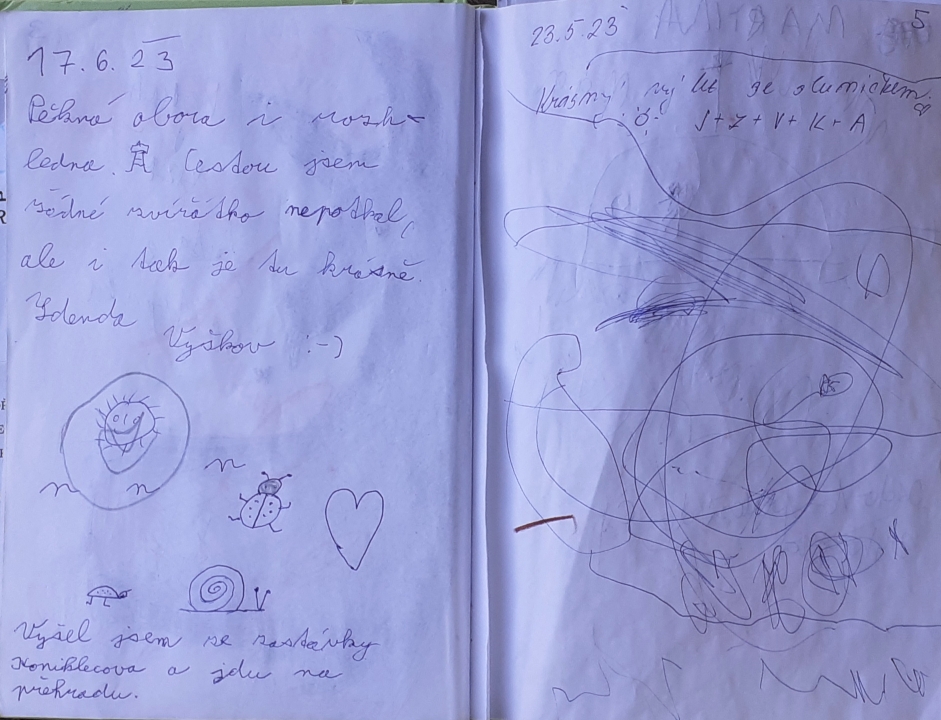 17. 6. 23
Pěkná obora i rozh-
ledna. Cestou jsem
žádné zvířátko nepotkal,
ale i tak je tu krásně.
Zdenda
Vyškov :-)
Vyšel jsem ze zastávky
Koniklecova a jdu na
přehradu.
5
23.5.23
Krásný výlet se sluníčkem.
J+Z+V+K+A